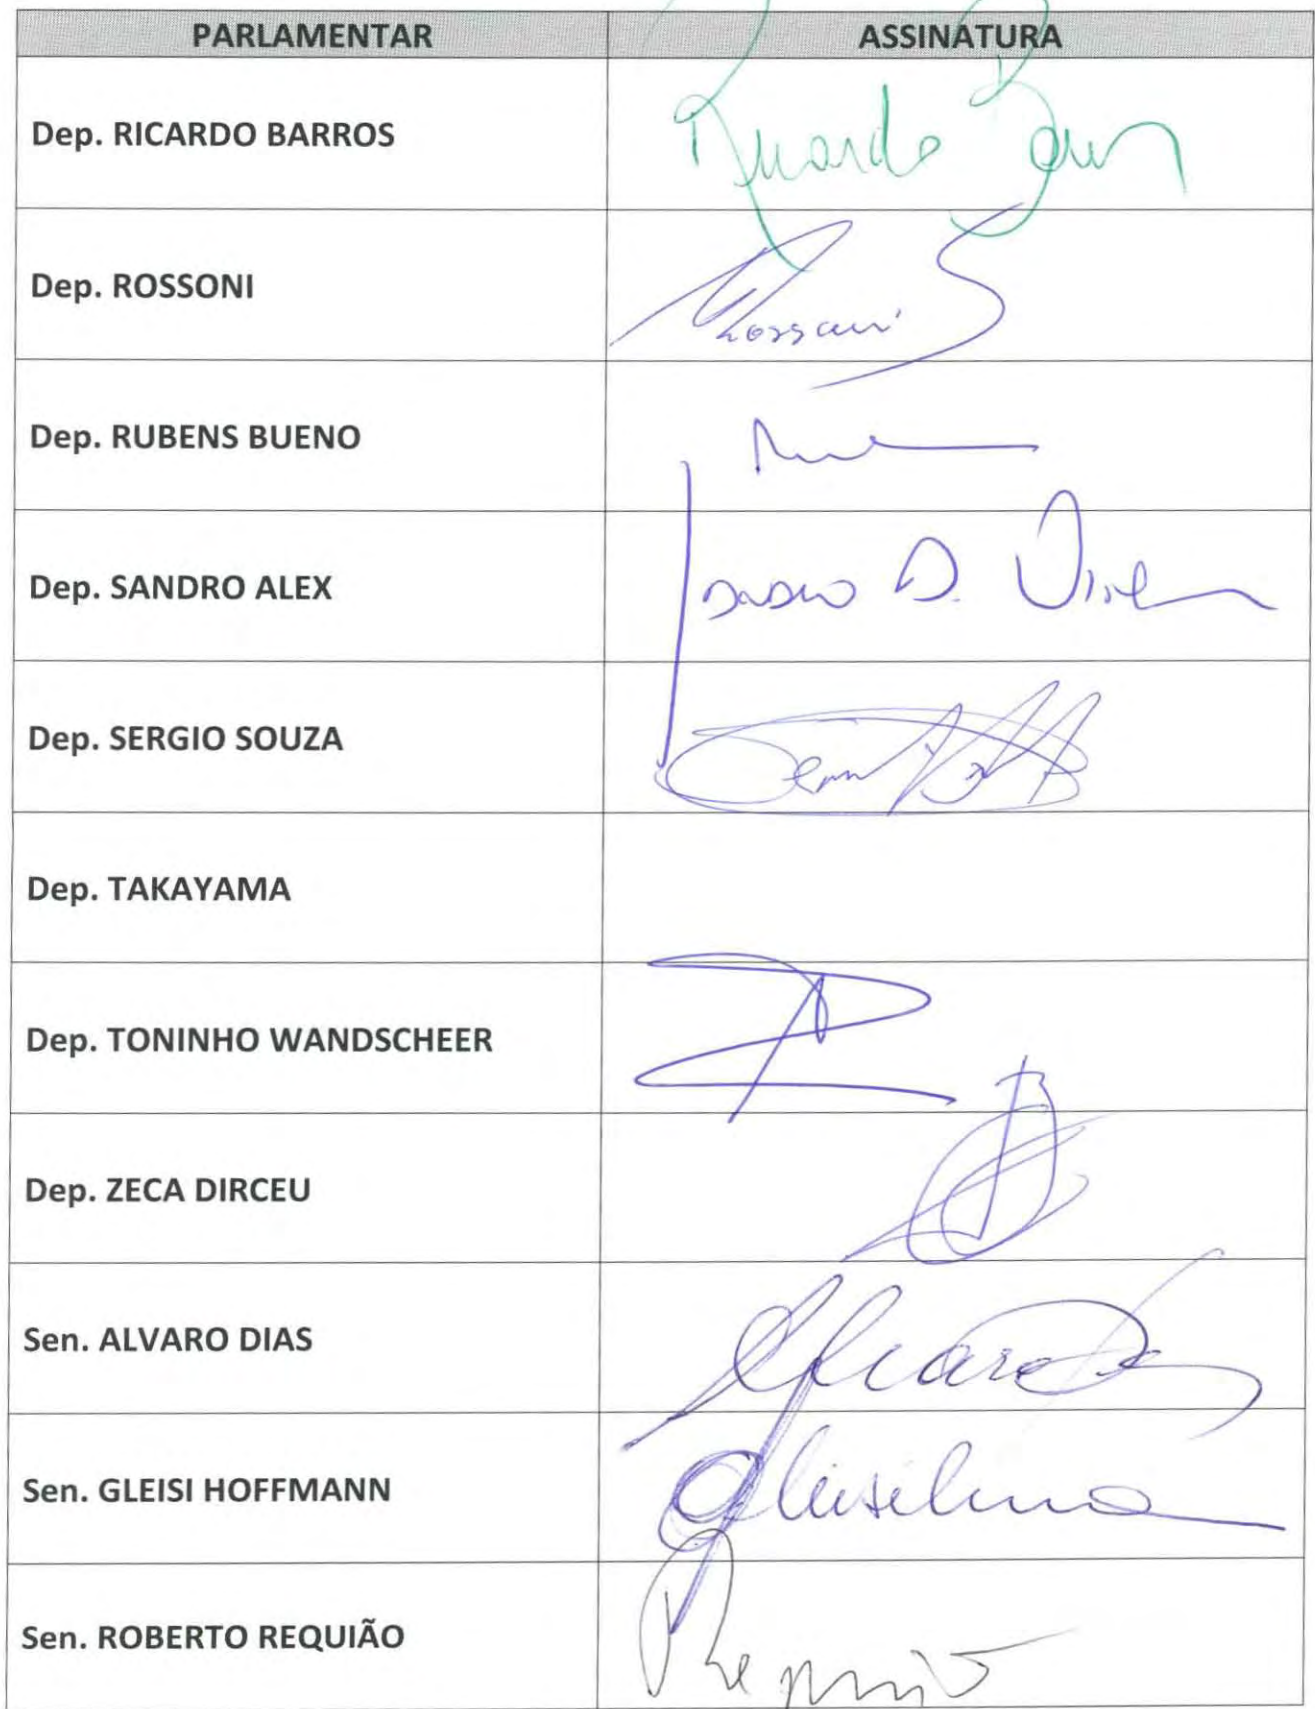 PARLAMENTAR ASSINATURA
Dep. RICARDO BARROS Ricardo Barros
Dep. ROSSONI Rossoni
Dep. RUBENS BUENO
Dep. SANDRO ALEX
Dep. SERGIO SOUZA
Dep. TAKAYAMA
Dep. TONINHO WANDSCHEER
Dep. ZECA DIRCEU
Sen. ALVARO DIAS
Sen. GLEISI HOFFMANN
Sen. ROBERTO REQUIÃO Requião